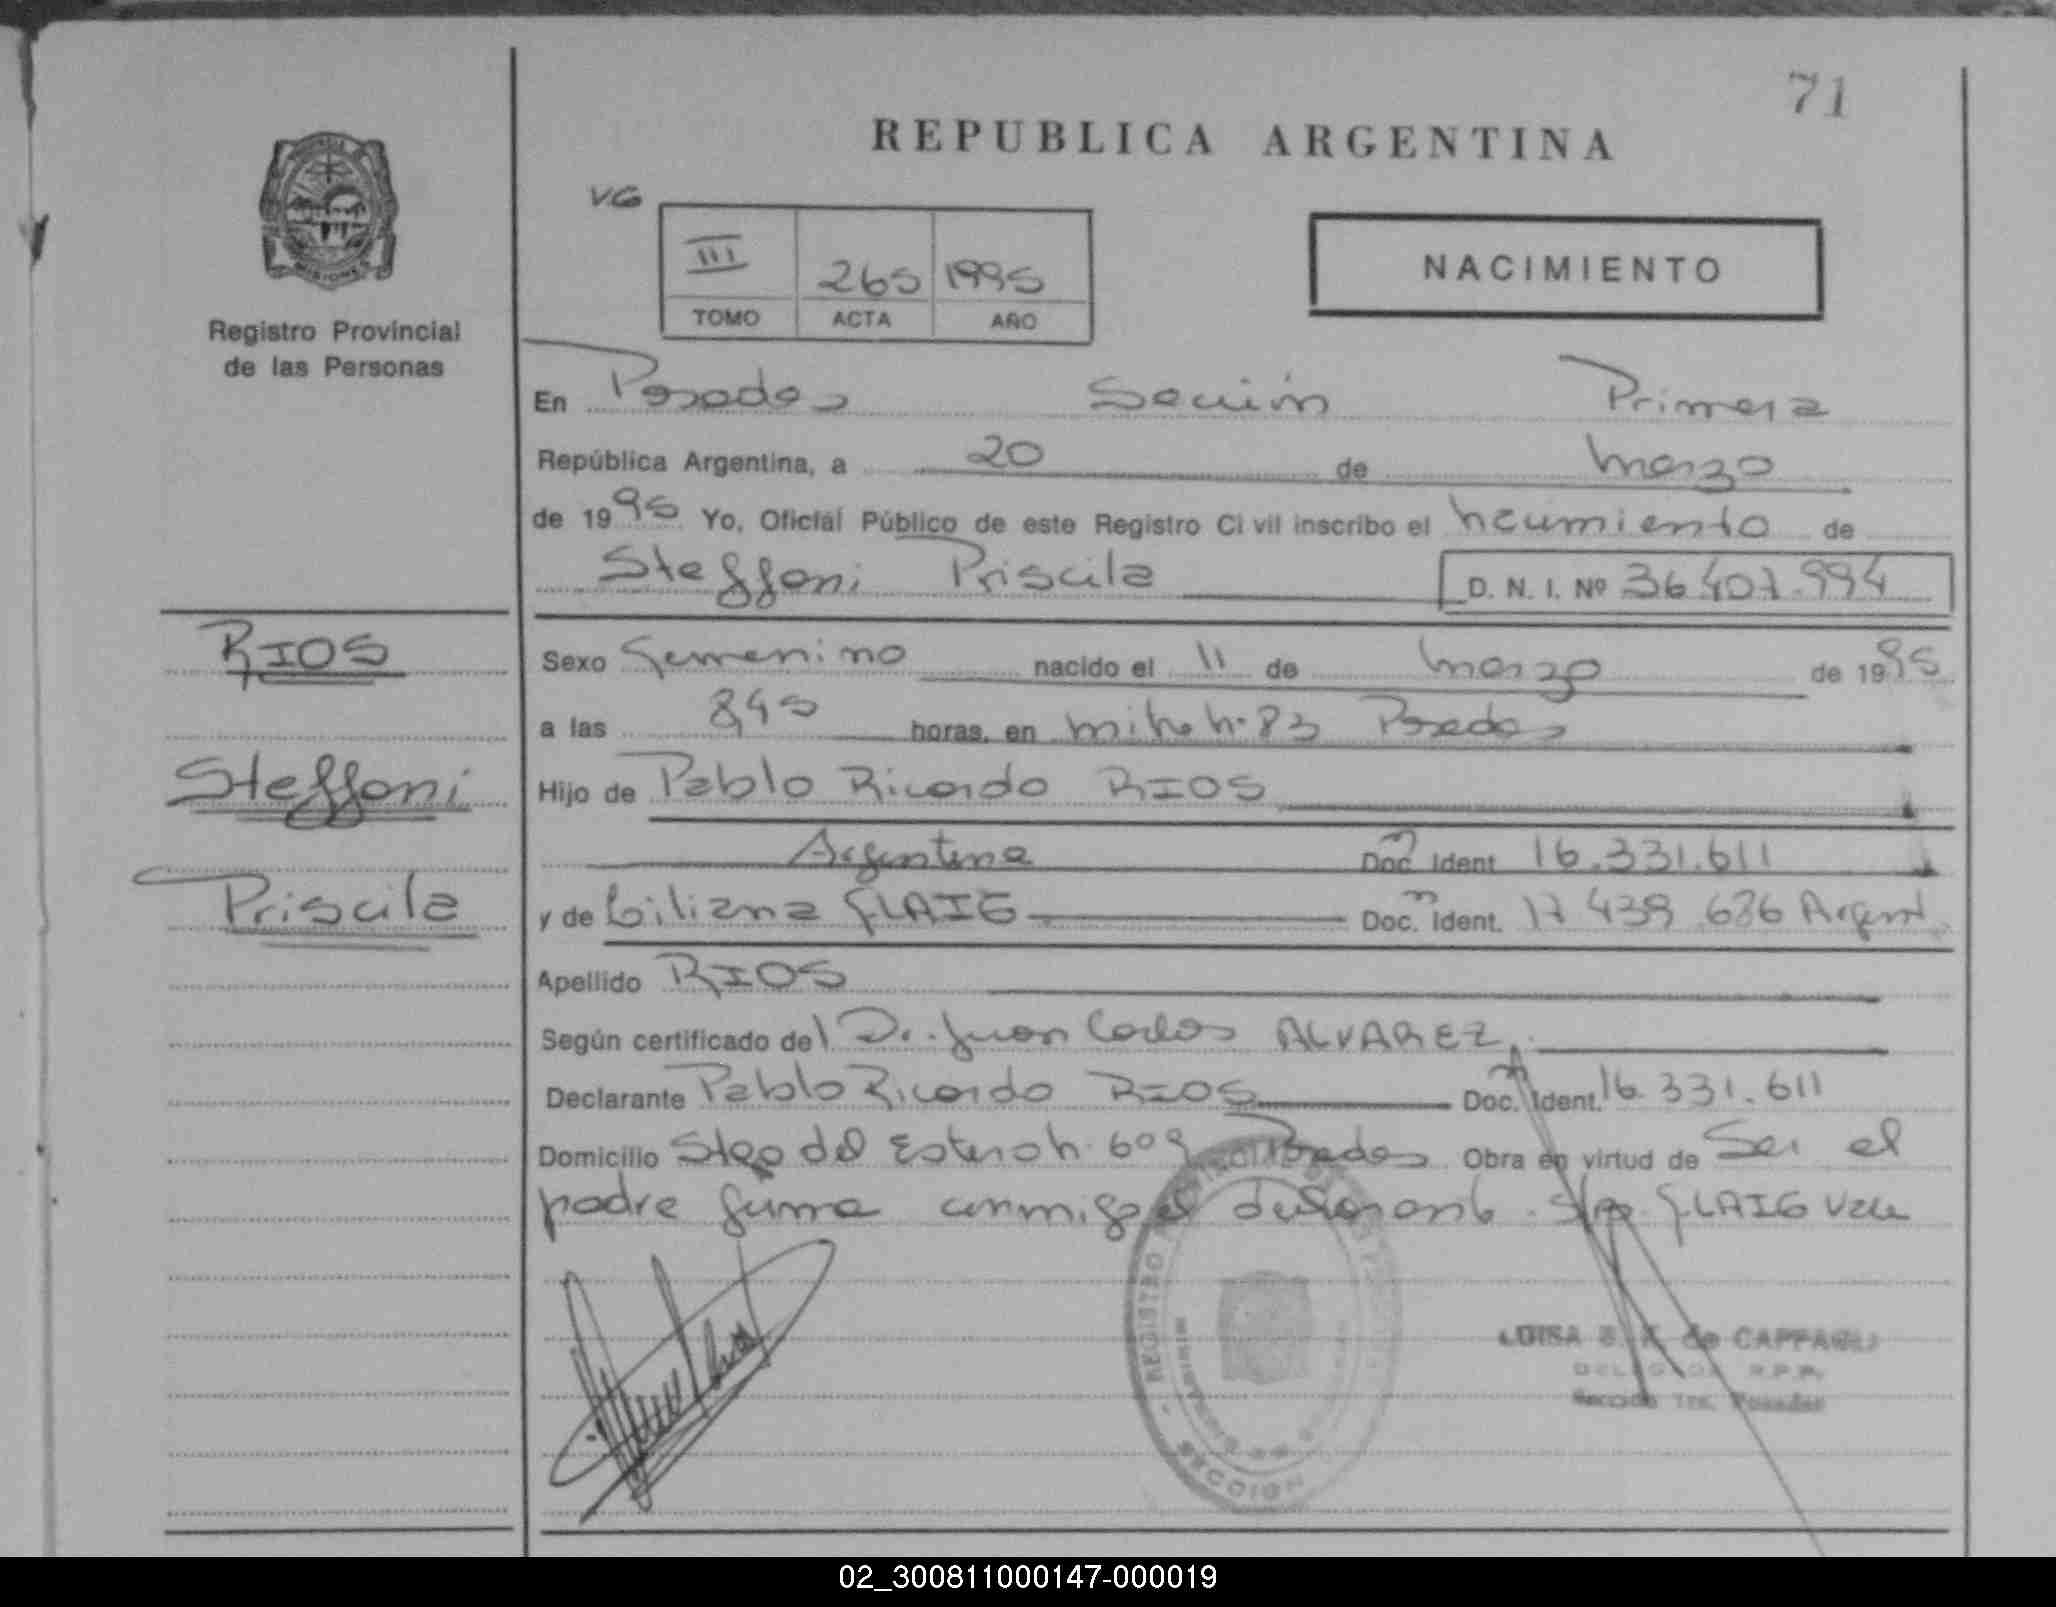 71
REPUBLICA ARGENTINA
VG
III 265 1995
TOMO ACTA AÑO
NACIMIENTO
MISIONES
Registro Provincial
de las Personas
En Posadas Sección Primera
República Argentina, a 20 de marzo
de 1995 Yo, Oficial Público de este Registro Civil inscribo el nacimiento de
Steffoni Priscila D. N. I. Nº 36.407.994
RIOS
Steffoni
Priscila
Sexo femenino nacido el 11 de marzo de 1995
a las 8,45 horas, en mitre n. 83 Posadas
Hijo de Pablo Ricardo RIOS
Argentina Doc. Ident. 16.331.611
y de Liliana FLAIG Doc. Ident. 17 439.686 Argent.
Apellido RIOS
Según certificado del Dr. Juan Carlos ALVAREZ
Declarante Pablo Ricardo RIOS Doc. Ident. 16.331.611
Domicilio Stgo del Estero n. 609 Posadas Obra en virtud de Ser el
padre firma conmigo el declarante FLAIG Vale
REGISTRO
SECCION
LUISA de
Posadas
02_300811000147-000019